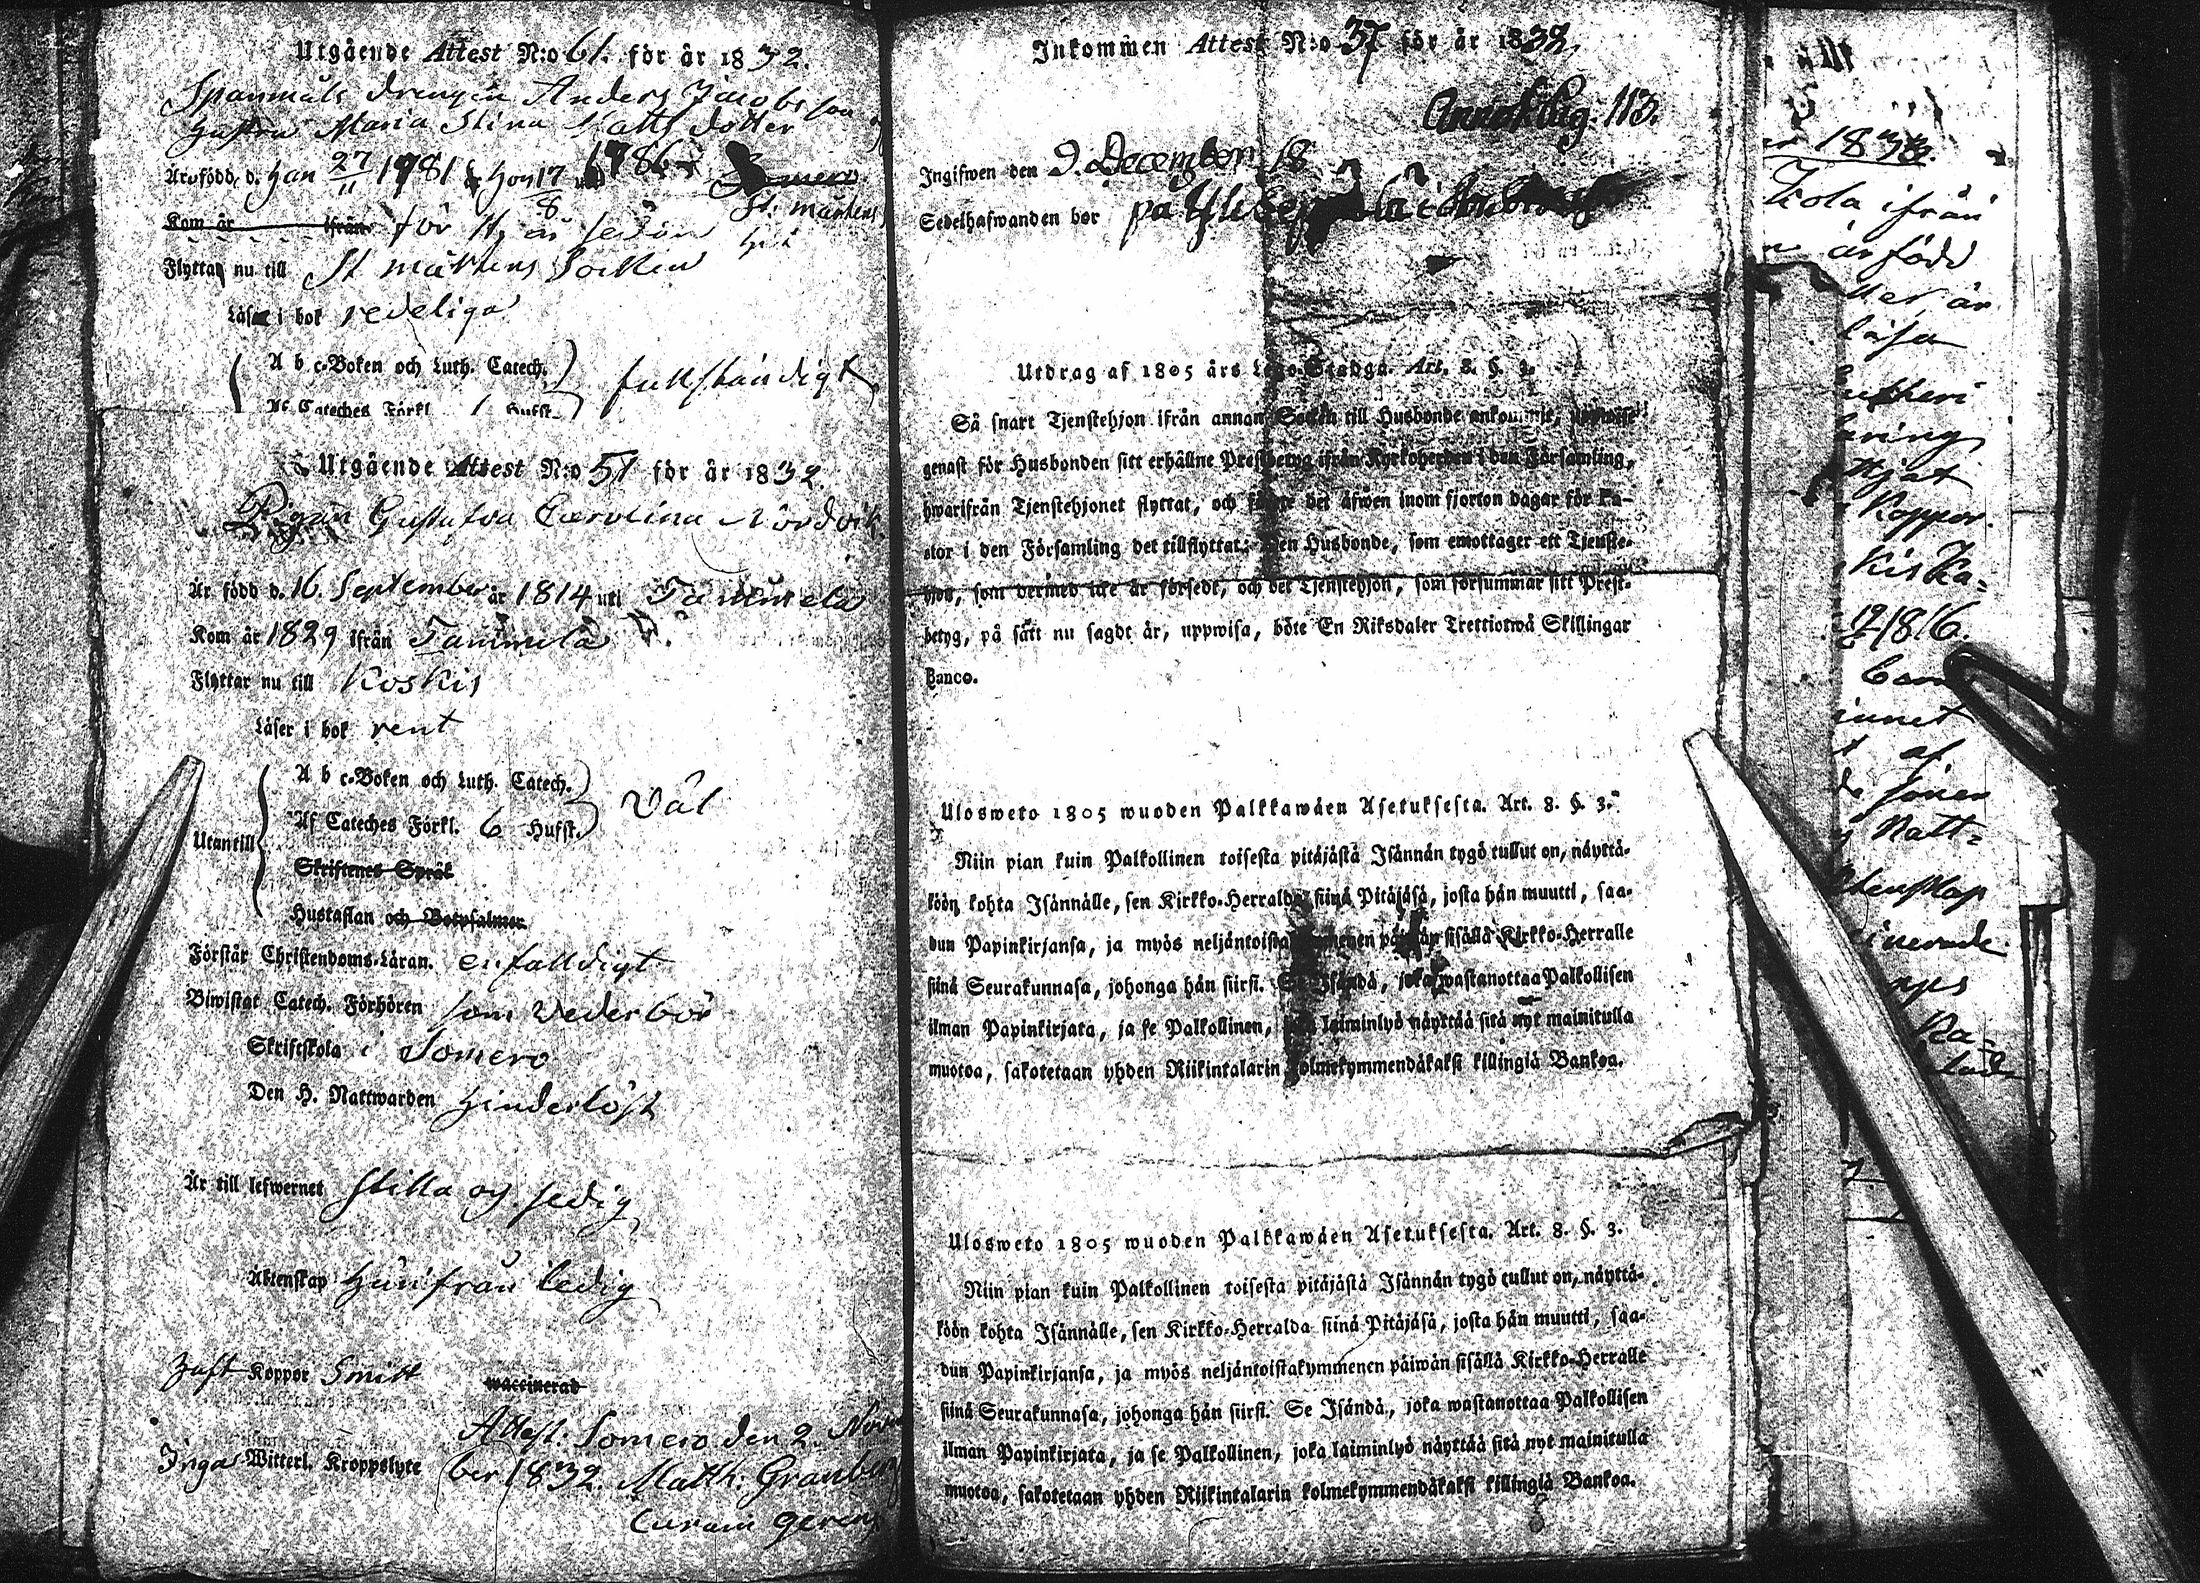 Utgående Attest N:o 61. för år 1832.
Spanmåls drengen Anders Jacobsson
hustru Maria Stina Matts dotter
Äro född, d. han 27/11 1781 hon 17/8 1786
Somero
Kom år ifrån för år sedan St. Mårtens
Flyttar nu till St Mårtens Socken
Läser i bok redeliga
A b c-Boken och Luth. Catech.
Af Cateches Förkl. Hufst. fullständigt
Utgående Attest N:o 51 för år 1832.
Pigan Gustafva Carolina Nordvik
Är född d. 16 September år 1814 uti Tammela
Kom år 1829 ifrån Tammela
Flyttar nu till Koskis
Läser i bok rent
Utantill
A b c-Boken och Luth. Catech.
Af Cateches Förkl. 6 Hufst. väl
Skriftenes Språk
Hustaflan och Botpsalmer
Förstår Christendoms-Läran. enfaldigt
Biwistat Catech. Förhören som vederbör
Skriftskola i Somero
Den H. Nattwarden hinderlöst
Är till lefwernet stilla och sedig
Äktenskap härifrån ledig
Haft Koppor Smitt waccinerad
Attest: Somero den 2. Novem
Inga Witterl. Kroppslyte ber 1832. Matth: Granberg
Curam gerens
Inkommen Attest N:o 37 för år 1832.
113.
Ingifwen den 9. December 18
Sedelhafwanden bor på
Utdrag af 1805 års Lego-Stadga. Art. 8. §. 3.
Så snart Tjenstehjon ifrån annan Socken till Husbonde ankommit, uppwise
genast för Husbonden sitt erhållne Prestbetyg ifrån Kyrkoherden i den Församling,
hwarifrån Tjenstehjonet flyttat, och det äfwen inom fjorton dagar för Pa-
stor i den Församling det tillflyttat: Den Husbonde, som emottager ett Tjenste-
hjon, som dermed icke är försedt, och det Tjenstehjon, som försummar sitt Prest-
betyg, på sätt nu sagdt är, uppwisa, böte En Riksdaler Trettiotwå Skillingar
Banco.
Ulosweto 1805 wuoden Palkkawäen Asetuksesta. Art. 8. §. 3.
Niin pian kuin Palkollinen toisesta pitäjästä Isännän tygö tullut on, näyttä-
köön kohta Isännälle, sen Kirkko-Herralda siinä Pitäjäsä, josta hän muutti, saa-
dun Papinkirjansa, ja myös neljäntoistakymmenen päiwän sisällä Kirkko-Herralle
siinä Seurakunnasa, johonga hän siirsi. Se Isändä, joka wastanottaa Palkollisen
ilman Papinkirjata, ja se Palkollinen, joka laiminlyö näyttää sitä nyt mainitulla
muotoa, sakotetaan yhden Riikintalarin kolmekymmendäkaksi killingiä Bankoa.
Ulosweto 1805 wuoden Palkkawäen Asetuksesta. Art. 8. §. 3.
Niin pian kuin Palkollinen toisesta pitäjästä Isännän tygö tullut on, näyttä-
köön kohta Isännälle, sen Kirkko-Herralda siinä Pitäjäsä, josta hän muutti, saa-
dun Papinkirjansa, ja myös neljäntoistakymmenen päiwän sisällä Kirkko-Herralle
siinä Seurakunnasa, johonga hän siirsi. Se Isändä, joka wastanottaa Palkollisen
ilman Papinkirjata, ja se Palkollinen, joka laiminlyö näyttää sitä nyt mainitulla
muotoa, sakotetaan yhden Riikintalarin kolmekymmendäkaksi killingiä Bankoa.
1833.
ifrån
är född
är
läsa
Koppor.
Kiska-
1816.
af
Natt-